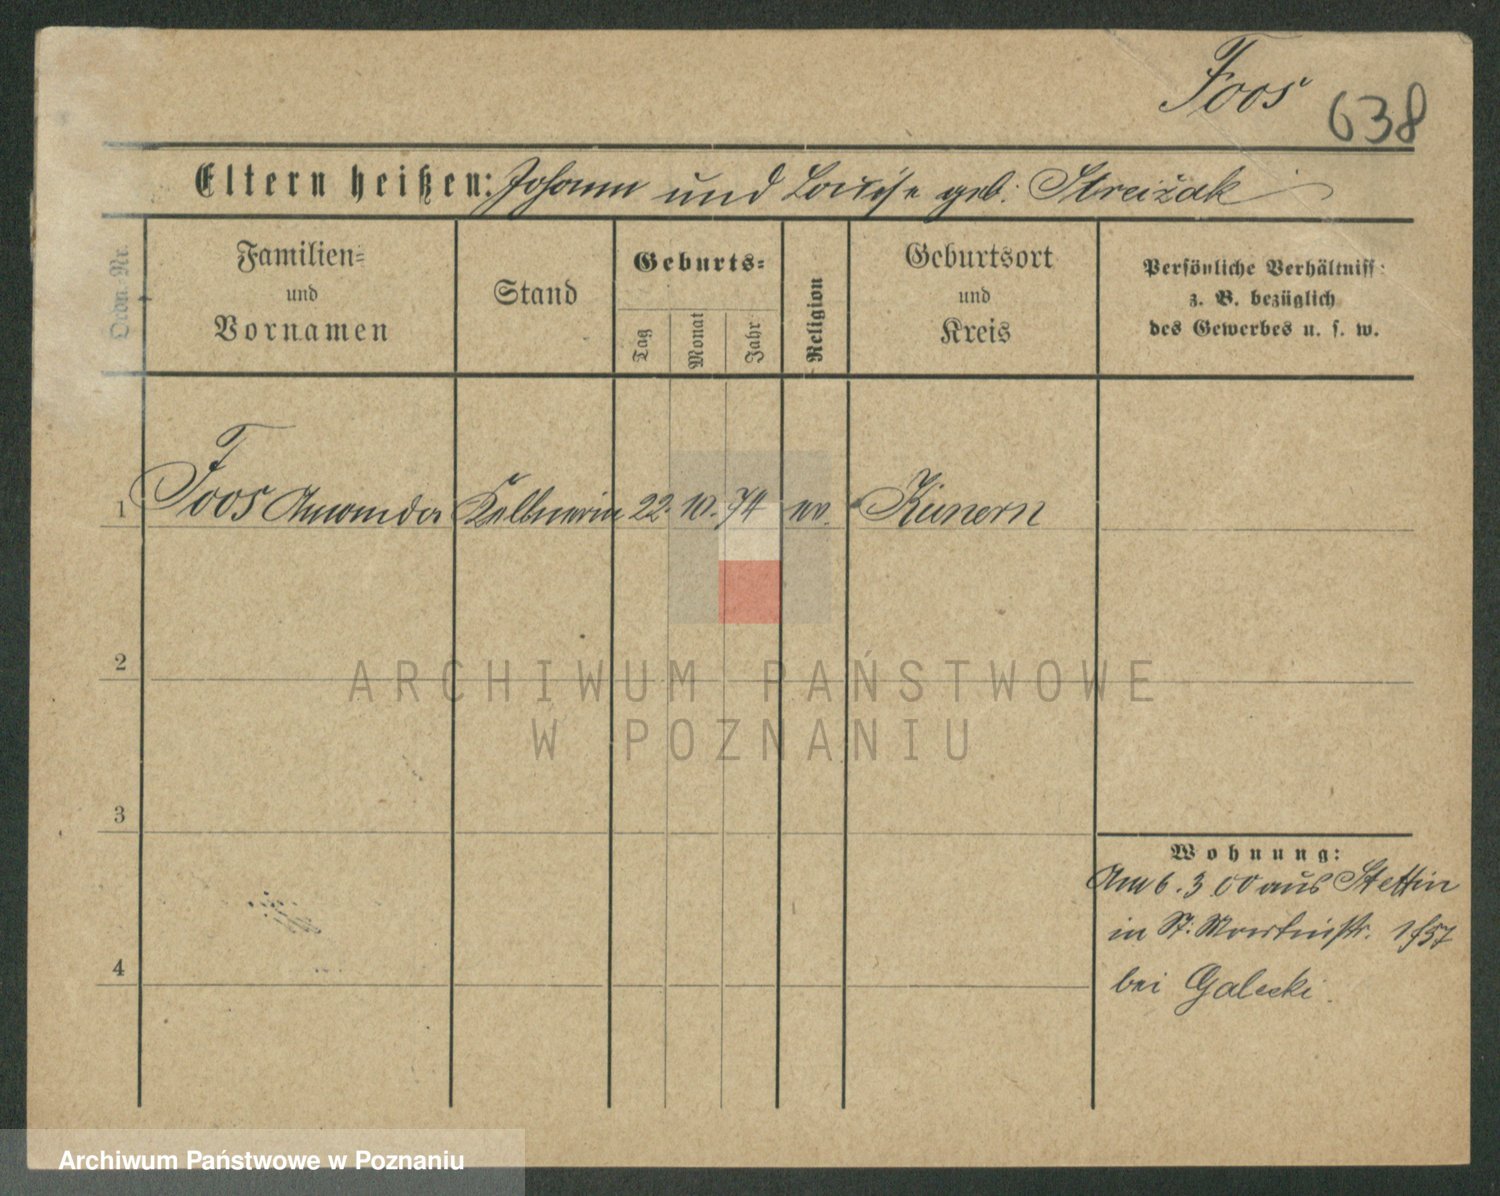 Foos 638
Eltern heißen: Johann und Louise geb. Streižak
Ordn. Nr.
Familien=
und
Vornamen
Stand
Geburts=
Tag
Monat
Jahr
Religion
Geburtsort
und
Kreis
Persönliche Verhältniss
z. B. bezüglich
des Gewerbes u. s. w.
1 Foos Amanda Kellnerin 22. 10. 74 ev. Kunern
2
ARCHIWUM PAŃSTWOWE
W POZNANIU
3
Wohnung:
Am 6. 3 00 aus Stettin
in St: Martinstr.
4
bei Galecki.
Archiwum Państwowe w Poznaniu